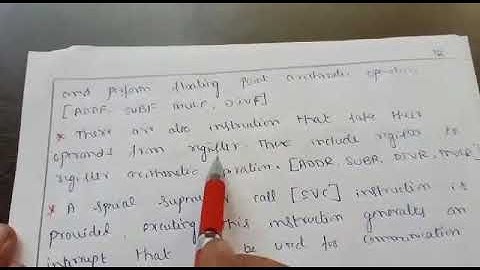 and perform floating point arithmetic operation
[ADDF, SUBF MULF, DIVF]
* There are also instruction that take their
operands from register. These include register to
register arithmetic operation. [ADDR, SUBR, DIVR, MULR]
* A special supervisor call [SVC] instruction is
provided, executing this instruction generates an
interrupt that be used for communication